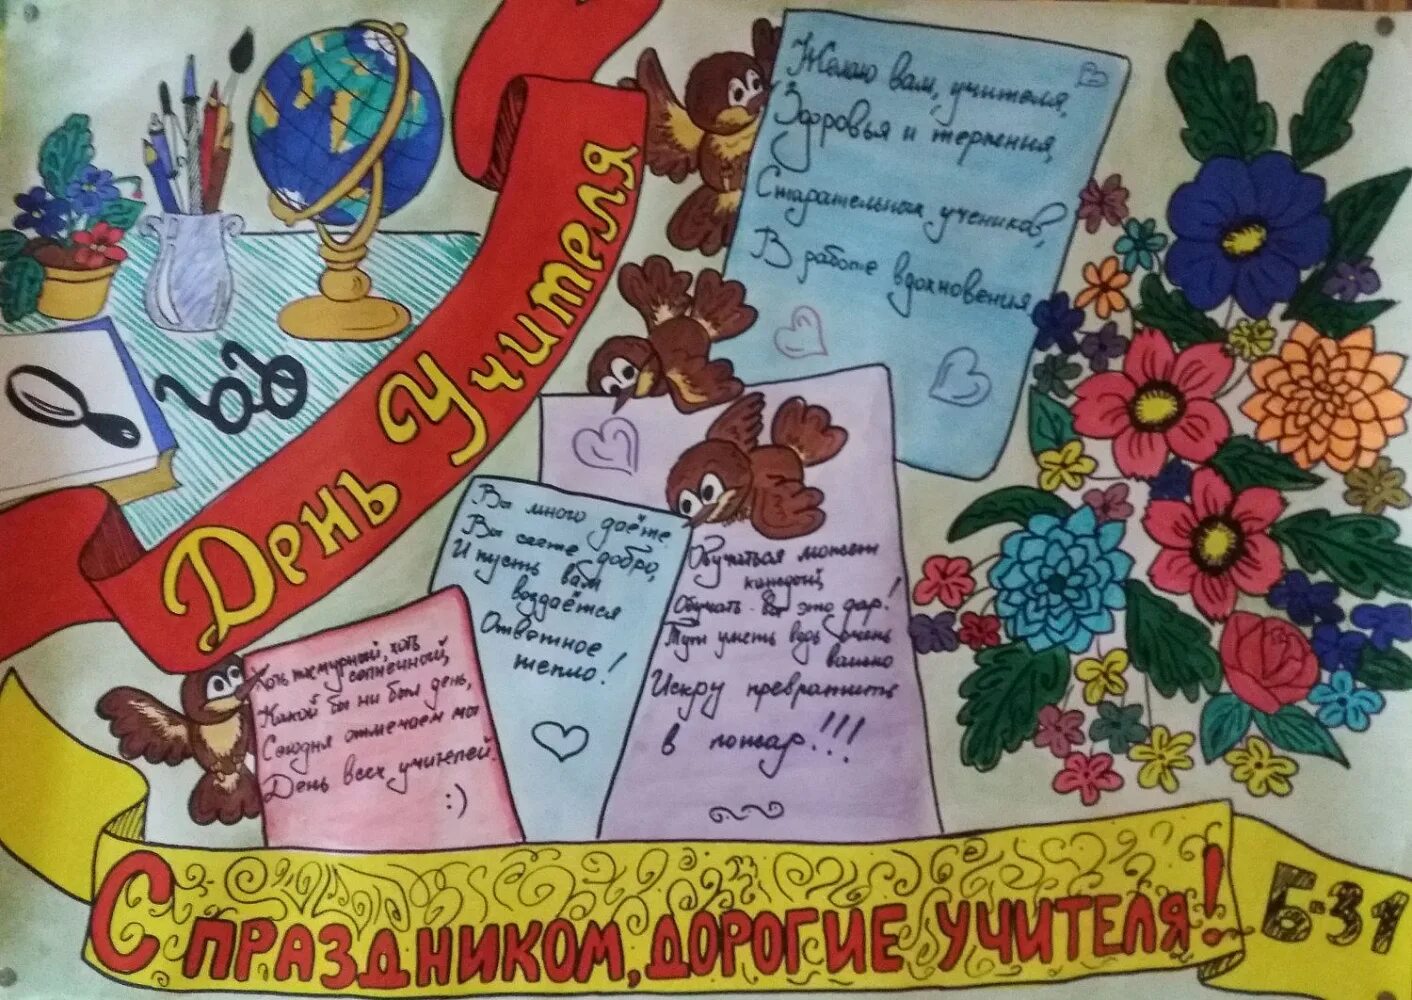 День Учителя
Желаю вам, учителя,
Здоровья и терпения,
Старательных учеников,
В работе вдохновения
Вы много даёте
Вы сеете добро,
И пусть вам
воздаётся
Ответное
тепло!
Обучаться может
каждый,
Обучать - это дар!
Тут уметь ведь очень
важно
Искру превратить
в пожар!!!
Хоть пасмурный, хоть
солнечный,
Какой бы ни был день,
Сегодня отмечаем мы
День всех учителей.
:)
С ПРАЗДНИКОМ, ДОРОГИЕ УЧИТЕЛЯ!
Б-31